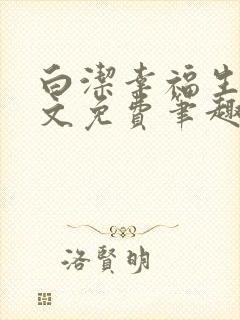 白潔幸福生
文免費筆趣
洛賢明